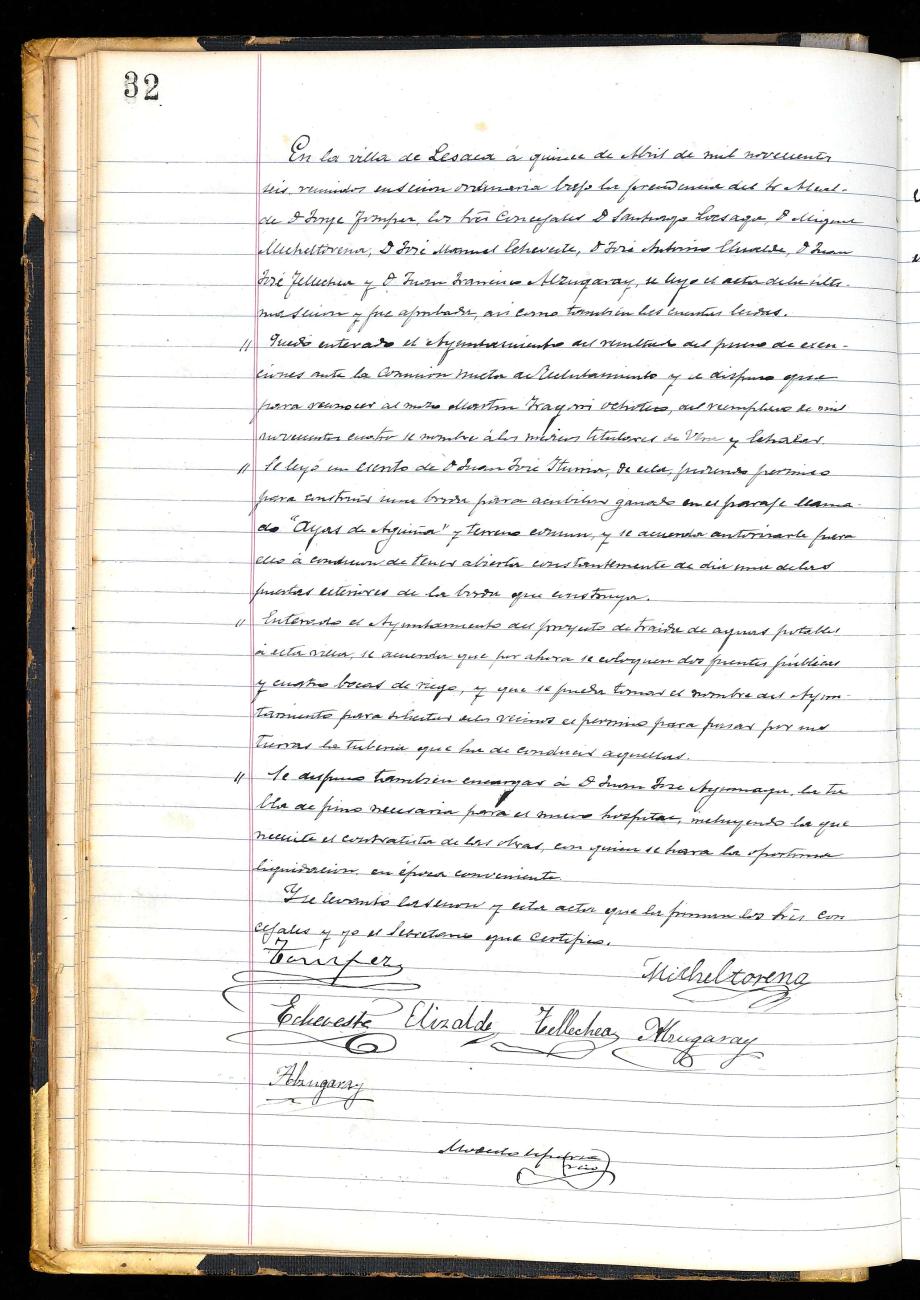 32
En la villa de Lesaca á quince de Abril de mil novecientos
seis, reunidos en sesion ordinaria bajo la presidencia del Sr Alcal-
de D Jorje, los Srès Concejales D Santiago, D Miguel
Micheltorena, D José Manuel Echeveste, D José Antonio Elizalde, D Juan
José Tellechea y D. Juan Francisco Alzugaray, se leyo el acta de la ulti-
ma sesion y fue aprobada, asi como tambien las cuentas leidas.
" Quedó enterado el Ayuntamiento del resultado del juicio de exen-
ciones ante la Comision mixta de Reclutamiento y se dispuso que
para reconocer al mozo Martin, del reemplazo de mil
novecientos cuatro se nombre á los médicos titulares de Vera y Echalar.
" Se leyó un escrito de D Juan José, de esta, pidiendo permiso
para construir una borda para acubilar ganado en el paraje llama-
do "Ayas de Aguiña" y terreno comun, y se acuerda autorizarle para
ello á condicion de tener abierta constantemente de dia una de las
puertas esteriores de la borda que construya.
" Enterado el Ayuntamiento del proyecto de traida de aguas potables
á esta villa, se acuerda que por ahora se coloquen dos fuentes públicas
y cuatro bocas de riego, y que se pueda tomar el nombre del Ayun-
tamiento para solicitar de los vecinos el permiso para pasar por sus
tierras la tuberia que ha de conducir aquellas.
" Se dispuso tambien encargar á D Juan José, la ta
bla de pino necesaria para el nuevo hospital, incluyendo la que
necesite el contratista de las obras, con quien se hara la oportuna
liquidacion, en época conveniente.
Y se levantó la sesion y esta acta que la firman los Srès con
cejales y yo el Secretario que certifico.
Micheltorena
Echeveste Elizalde Tellechea Alzugaray
Alzugaray